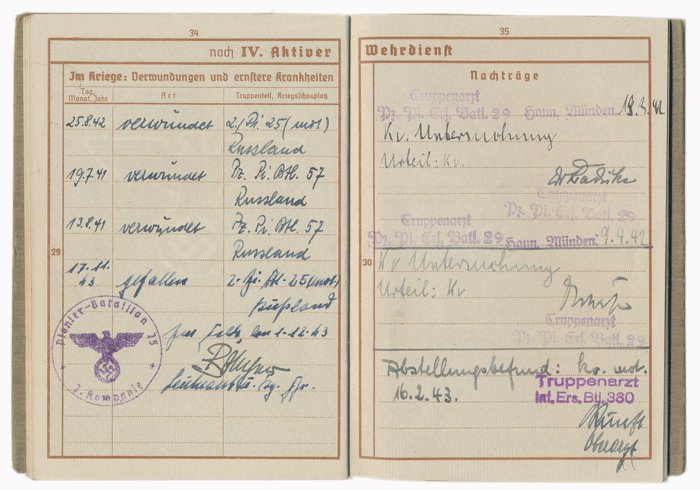 34
noch IV. Aktiver
Im Kriege: Verwundungen und ernstere Krankheiten
Tag, Monat, Jahr
Art
Truppenteil, Kriegsschauplatz
25.8.42 verwundet 2./Pi. 25 (mot)
Russland
19.7.41 verwundet Pz. Pi. Btl. 57
Russland
13.8.41 verwundet Pz. Pi Btl. 57
Russland
29
17.11.43 gefallen 2. Pi. Btl. 25 (mot)
Rußland
1.12.43
Pionier-Bataillon 25
2. Kompanie
Leutnant u.
35
Wehrdienst
Nachträge
Truppenarzt
Pz. Pi. Ers. Batl. 29 Hann. Münden 18.3.42
Kv. Untersuchung
Urteil: Kv.
Truppenarzt
Pz. Pi. Ers. Batl. 29
Truppenarzt
Pz. Pi. Ers. Batl. 29 Hann. Münden. 9.4.42
30
Kv Untersuchung
Urteil: Kv
Truppenarzt
Pz. Pi. Ers. Batl. 29
Abstellungsbefund: kv.
16.2.43.
Truppenarzt
Inf. Ers. Btl. 380
Oberarzt